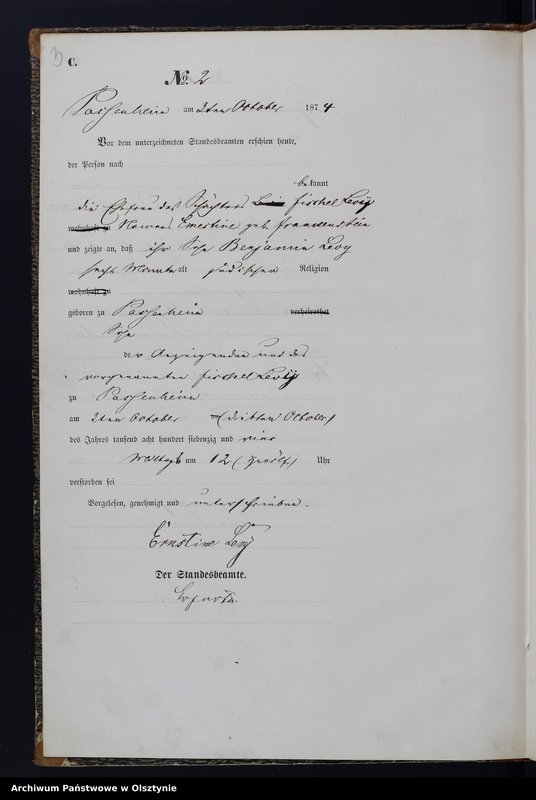 3
C.
No. 2
Passenheim am 3ten October 1874
Vor dem unterzeichneten Standesbeamten erschien heute,
der Person nach
bekannt
die Ehefrau des Schächters Fischel Levy
wohnhaft zu Namens Ernestine geb. Frankenstein
und zeigte an, daß ihr Sohn Benjamin Levy
sechs Monate alt jüdischen Religion
wohnhaft zu
geboren zu Passenheim verheirathet
Sohn
der Anzeigenden und des
vorgenannten Fischel Levy
zu Passenheim
am 3ten October (dritten October)
des Jahres tausend acht hundert siebenzig und vier
Mittags um 12 (zwölf) Uhr
verstorben sei
Vorgelesen, genehmigt und unterschrieben.
Ernstine Levy
Der Standesbeamte.
Archiwum Państwowe w Olsztynie